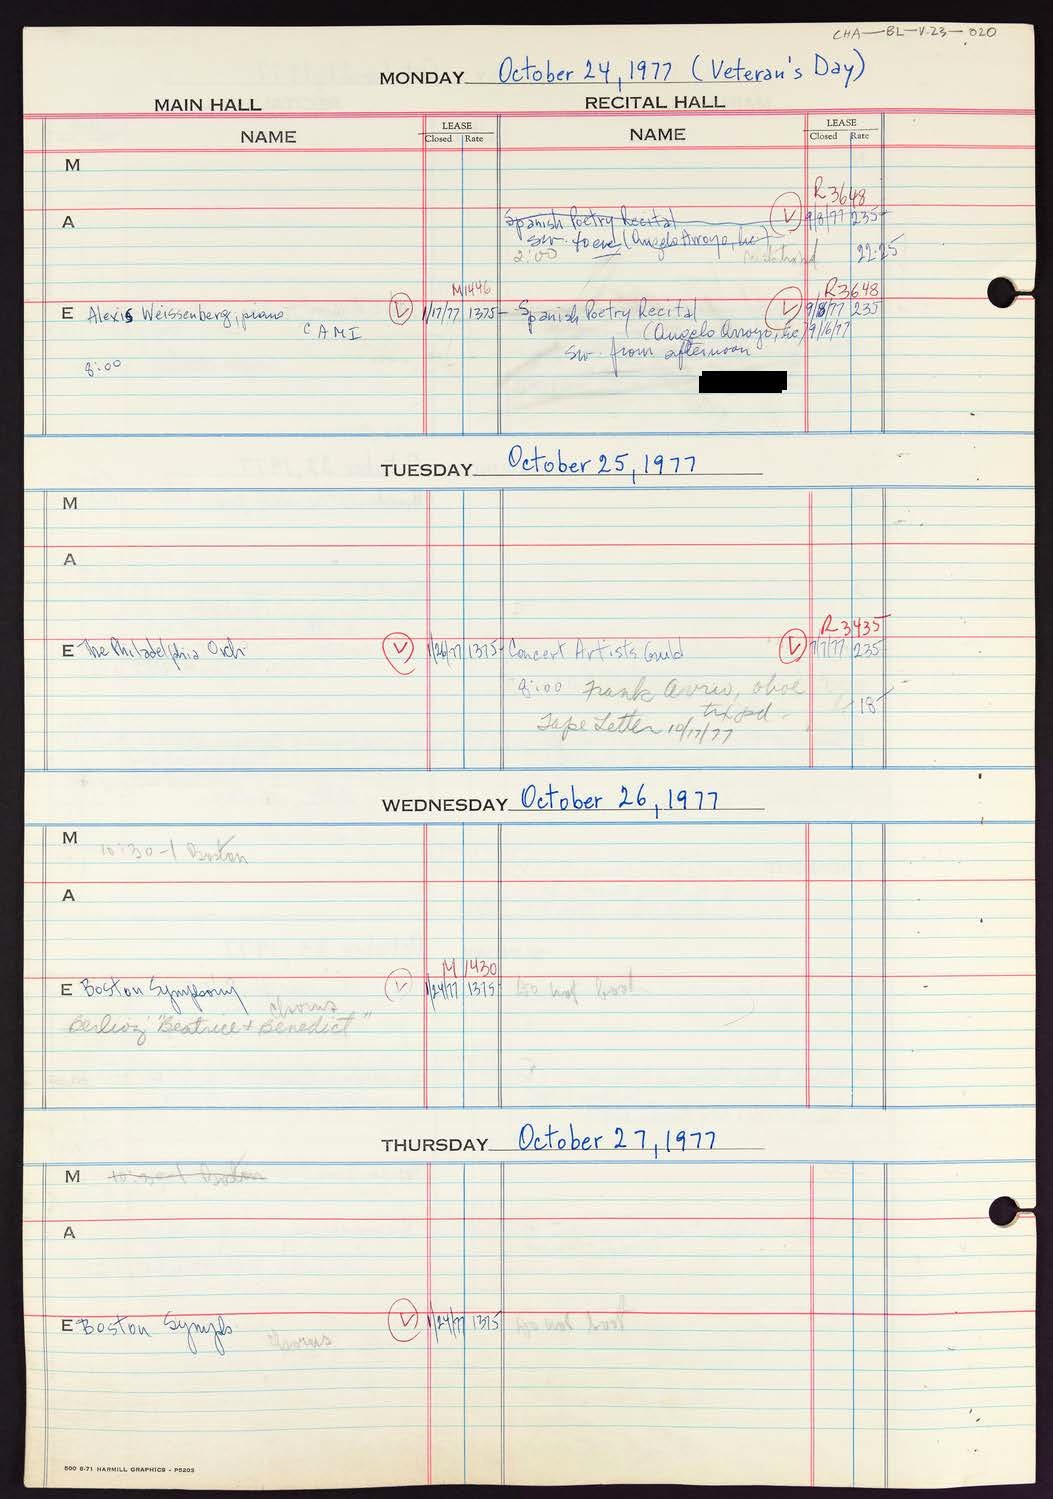 CHA-BL-V.23-020
MONDAY October 24, 1977 (Veteran's Day)
MAIN HALL RECITAL HALL
NAME LEASE Closed Rate NAME LEASE Closed Rate
M
R3648
A Spanish Poetry Recital V 9/8/77 235-
sw. to eve (Angelo Arroyo, Inc)
2:00 22.25
M1446 R3648
E Alexis Weissenberg, piano V 1/17/77 1375- Spanish Poetry Recital V 9/8/77 235
CAMI (Angelo Arroyo, Inc) 9/6/77
sw. from afternoon
8:00
TUESDAY October 25, 1977
M
A
R3435
E The Philadelphia Orch. V 1/26/77 1375- Concert Artists Guild V 7/7/77 235-
8:00 Frank Avril, oboe
18-
Tape Letter 10/17/77
WEDNESDAY October 26, 1977
M 10:30-1 Boston
A
M 1430
E Boston Symphony V 1/24/77 1375- Do not book
chorus
Berlioz "Beatrice + Benedict"
THURSDAY October 27, 1977
M 10:30-1 Boston
A
E Boston Symph V 1/24/77 1375 Do not book
chorus
500 8-71 HARMILL GRAPHICS - P5203